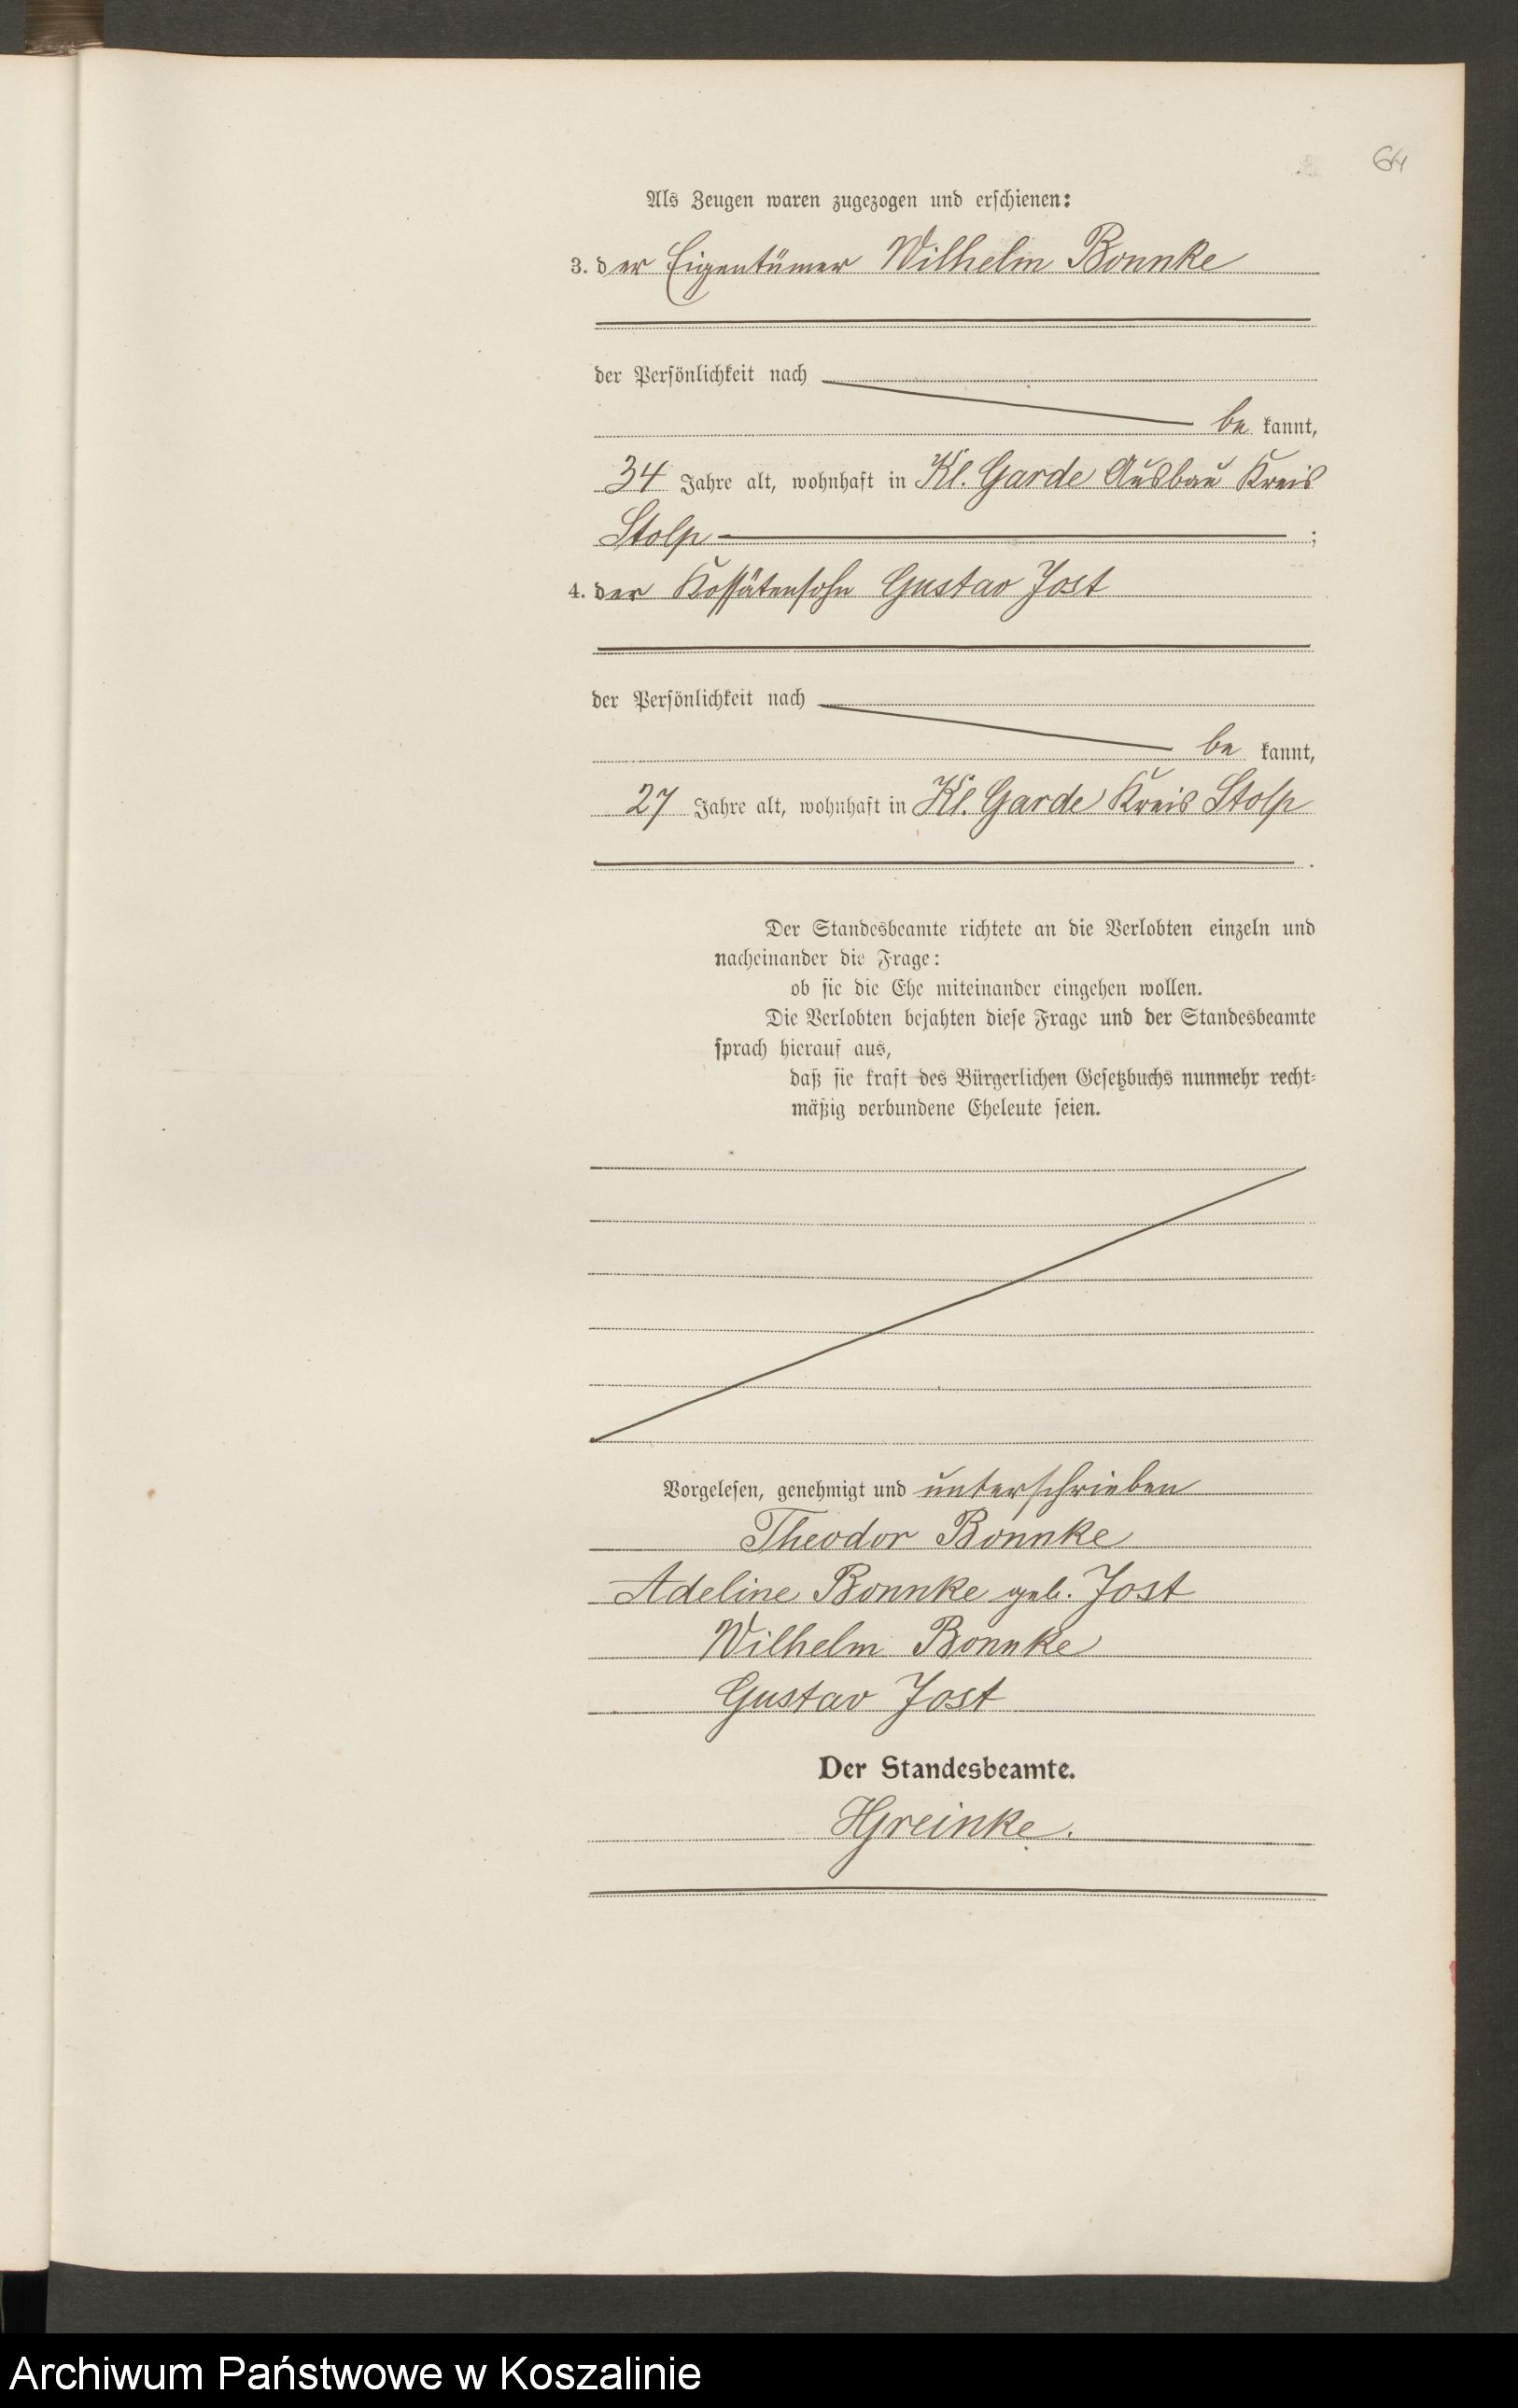 64
Als Zeugen waren zugezogen und erschienen:
3. der Eigentümer Wilhelm Bonnke
der Persönlichkeit nach
be kannt,
34 Jahre alt, wohnhaft in Kl. Garde Ausbau Kreis
Stolp ;
4. der Kossätensohn Gustav Jost
der Persönlichkeit nach
be kannt,
27 Jahre alt, wohnhaft in Kl. Garde Kreis Stolp
.
Der Standesbeamte richtete an die Verlobten einzeln und
nacheinander die Frage:
ob sie die Ehe miteinander eingehen wollen.
Die Verlobten bejahten diese Frage und der Standesbeamte
sprach hierauf aus,
daß sie kraft des Bürgerlichen Gesetzbuchs nunmehr recht-
mäßig verbundene Eheleute seien.
Vorgelesen, genehmigt und unterschrieben
Theodor Bonnke
Adeline Bonnke geb. Jost
Wilhelm Bonnke
Gustav Jost
Der Standesbeamte.
HGreinke.
Archiwum Państwowe w Koszalinie